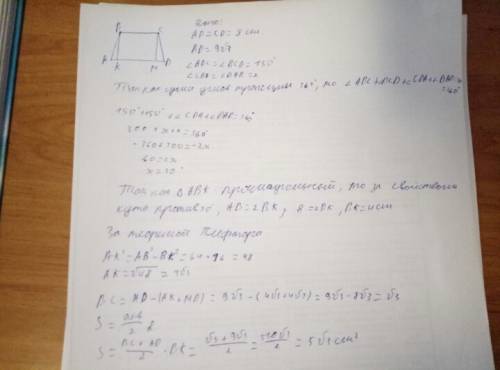 B C
A K M D
Дано:
AB=CD=8 см
AD=9√3
∠ABC=∠BCD=150°
∠CDA=∠DAB=x
Так как сумма углов трапеции 360°, то ∠ABC+∠BCD+∠CDA+∠DAB=
=360°
150°+150°+∠CDA+∠DAB=360°
300+x+x=360°
-360+300=-2x
60=2x
x=30°
Так как △ABK прямоугольный, то за свойством
кута против 30°, AB=2BK, 8=2BK, BK=4см
За теоремой Пифагора
AK²=AB²-BK²=64-16=48
AK=√48=4√3
BC=AD-(AK+MD)=9√3-(4√3+4√3)=9√3-8√3=√3
S=a+b/2 h
S=BC+AD/2 · BK=√3+9√3/2 = 10√3/2 = 5√3 см²